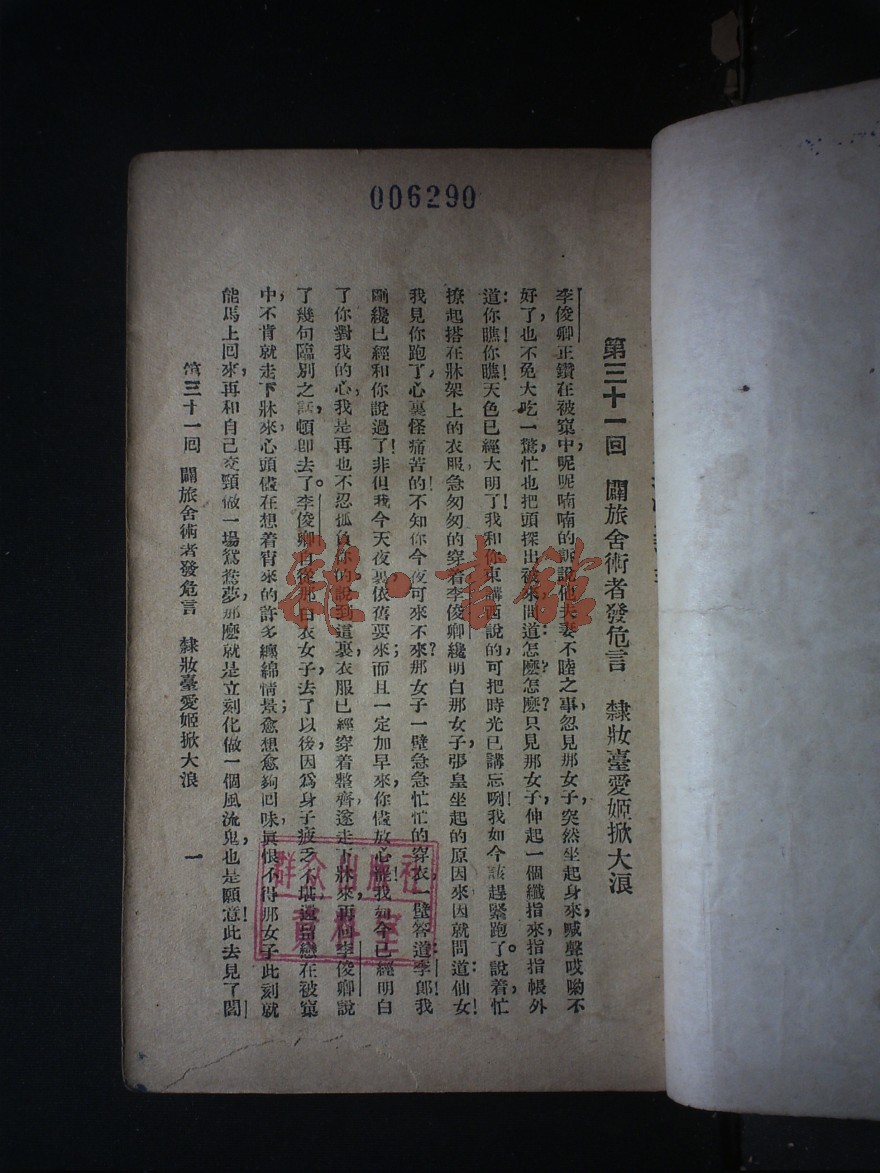 006290
第三十一回 闢旅舍術者發危言 隸妝臺愛姬掀大浪
李俊卿正鑽在被窠中，呢呢喃喃的訴說他夫妻不睦之事，忽見那女子，突然坐起身來，喊聲哎喲不
好了，也不免大吃一驚，忙也把頭探出被來，問道：怎麼？怎麼？只見那女子，伸起一個纖指來，指指帳外
道：你瞧！你瞧！天色已經大明了！我和你東講西說的，可把時光已講忘咧！我如今該趕緊跑了。說着，忙
撩起搭在牀架上的衣服，急匆匆的穿着。李俊卿纔明白那女子，張皇坐起的原因來，因就問道：仙女！
我見你跑了，心裏怪痛苦的！不知你今夜可來不來？那女子一壁急急忙忙的穿衣，一壁答道：李郎！我
剛纔已經和你說過了！非但我今天夜裏，依舊要來；而且一定加早來，你儘放心罷！我如今已經明白
了你對我的心，我是再也不忍孤負你的。說到這裏，衣服已經穿着整齊，遂走下牀來，再向李俊卿說
了幾句臨別之話，頓即去了。李俊卿自從那白衣女子去了以後，因爲身子疲乏不堪，還留戀在被窠
中，不肯就走下牀來，心頭儘在想着宵來的許多纏綿情景；愈想愈夠回味，眞恨不得那女子此刻就
能馬上回來，再和自己交頸做一場鴛鴦夢，那麼就是立刻化做一個風流鬼，也是願意！此去見了閻
第三十一回 闢旅舍術者發危言 隸妝臺愛姬掀大浪 一
群众出版社
資料室
雜·書館